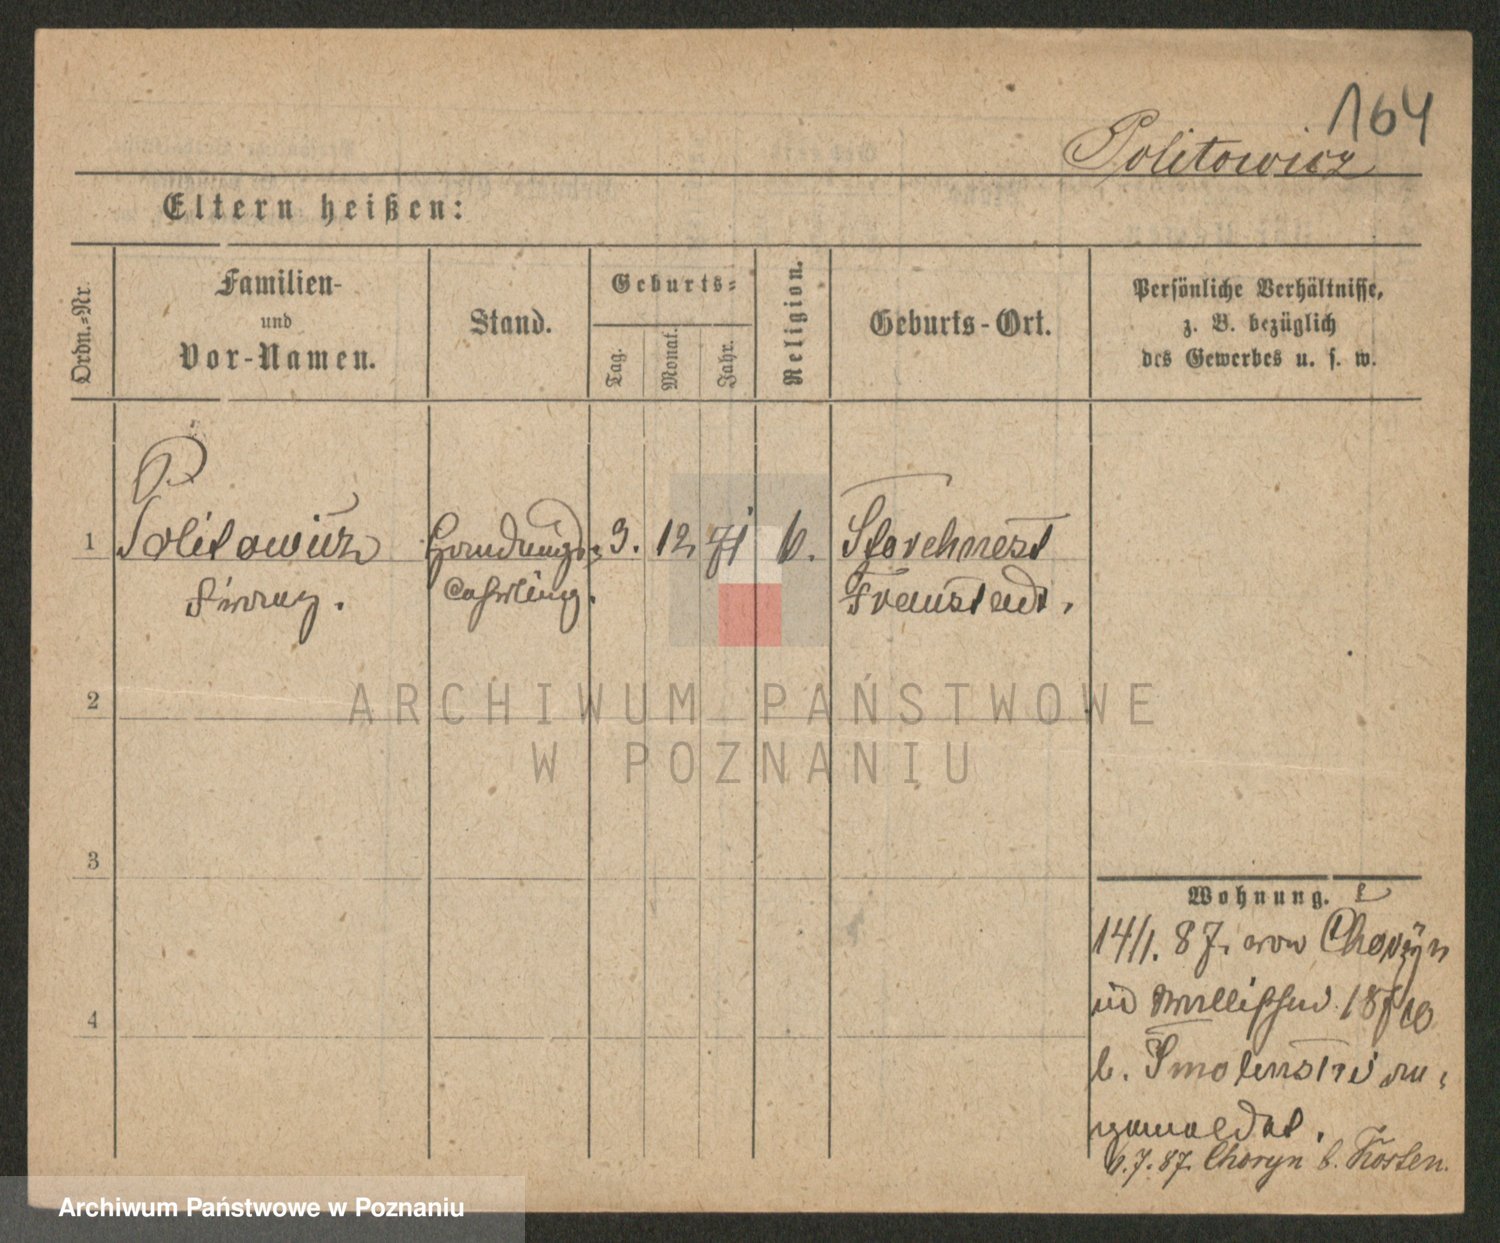 164
Politowicz
Eltern heißen:
Ordn.-Nr.
Familien-
und
Vor-Namen.
Stand.
Geburts-
Tag.
Monat.
Jahr.
Religion.
Geburts-Ort.
Persönliche Verhältnisse,
z. B. bezüglich
des Gewerbes u. s. w.
P
1 Politowicz Handlungs- 3. 12 71 k. Storchnest
Lehrling. Fraustadt.
2
3
4
Wohnung.
14/1. 87. von Choryn
in Wallischei
b. Smolenski an-
gemeldet.
7. 87. Choryn b. Kosten.
ARCHIWUM PAŃSTWOWE
W POZNANIU
Archiwum Państwowe w Poznaniu